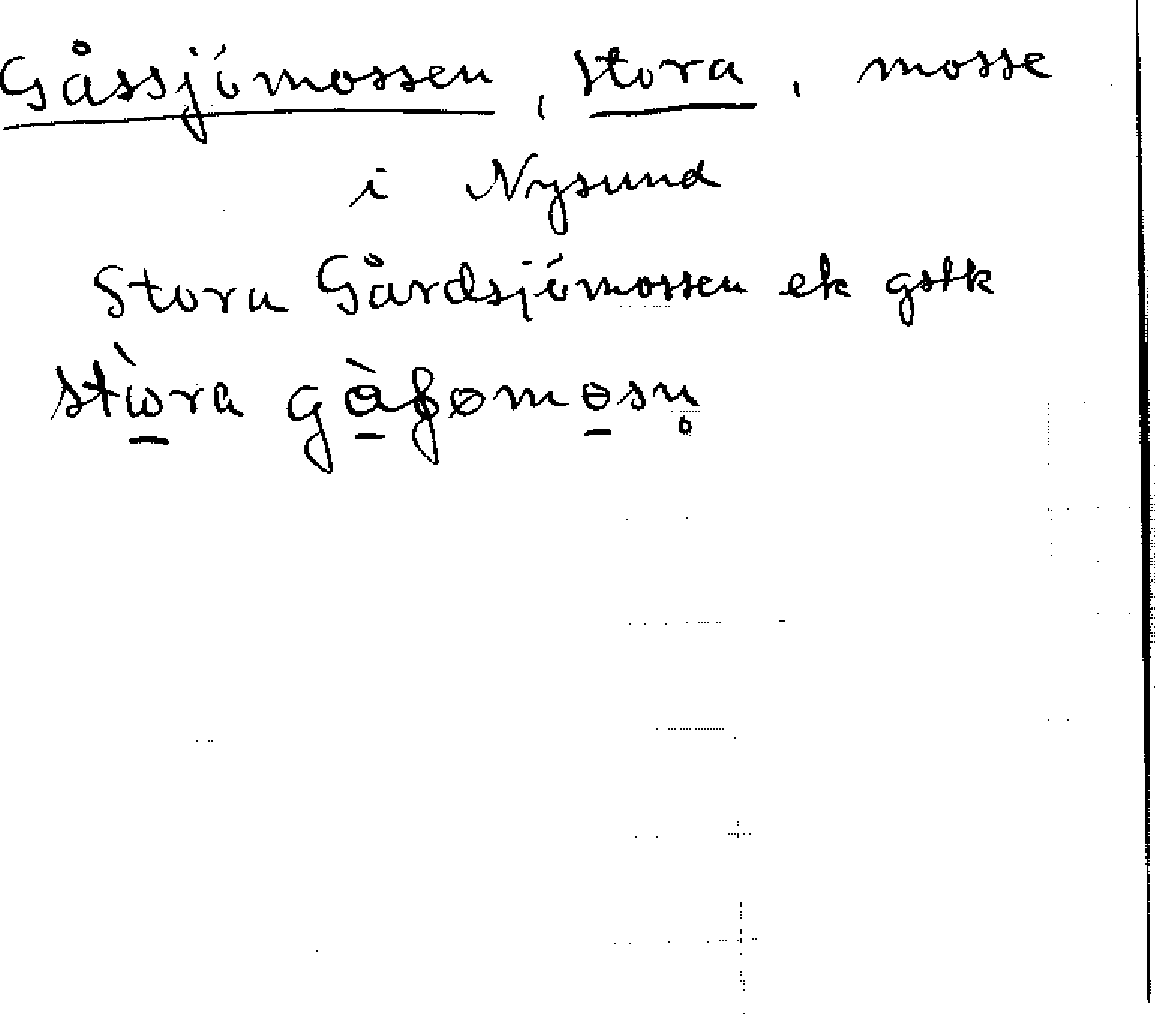 Gåssjömossen, Stora, mosse
i Nysund
Stora Gårdsjömossen ek gstk
stora